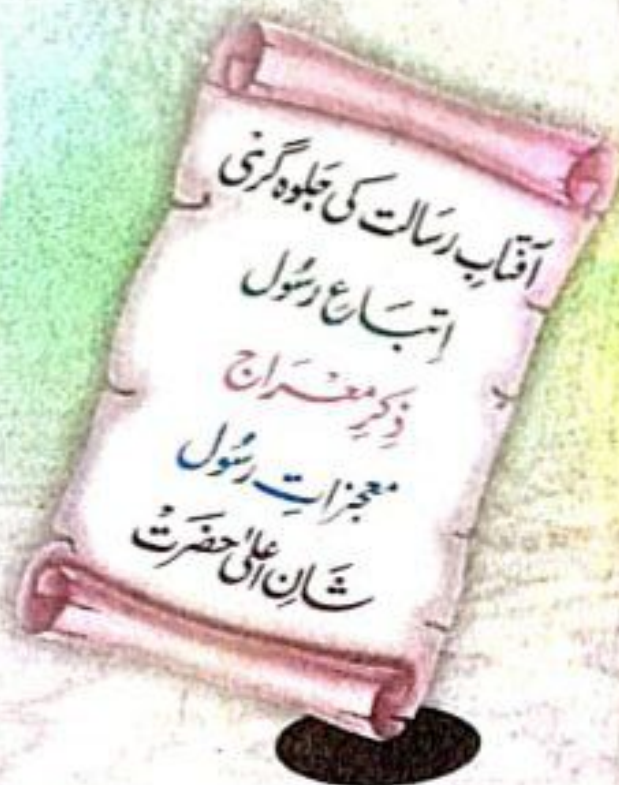 آفتابِ رسَالت کی جَلوہ گرَی
اِتبَاعِ رسُول
ذِکرِ معْرَاج
معجزاتِ رسُول
شَانِ اعلیٰ حضَرتْ